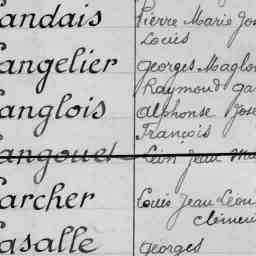 andais Pierre Marie Jos
Louis
angelier Georges Maglo
Raymond Ga
anglois Alphonse Jose
François
angouet Léon Jean Ma
archer Louis Jean Léon
Clémen
asalle Georges